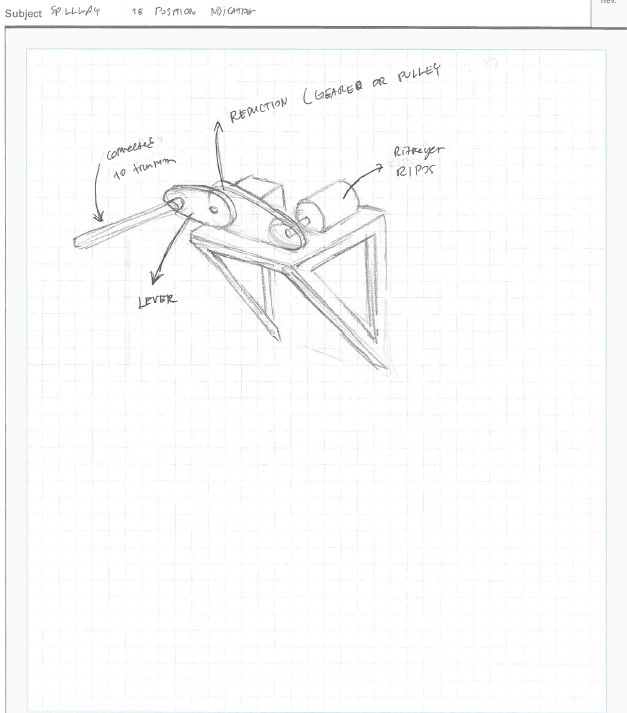 Rev.
Subject SPILLWAY 18 POSITION INDICATOR
REDUCTION (GEARED OR PULLEY
connected
to trunnion
Rittmeyer
RIPS
LEVER